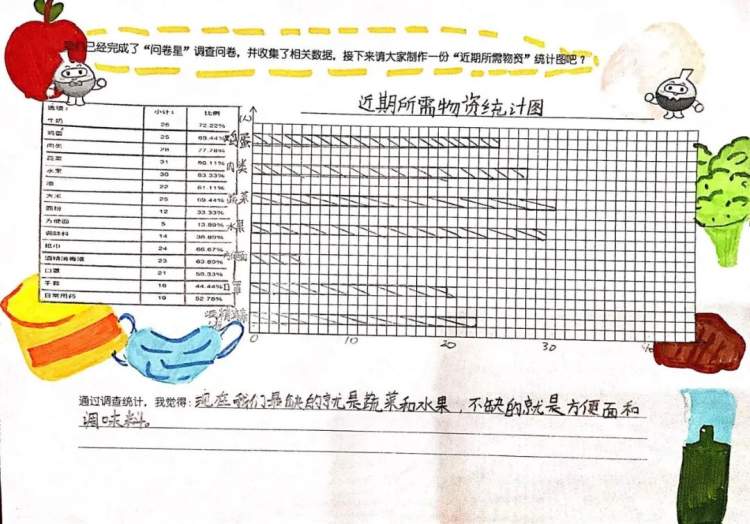 我们已经完成了“问卷星”调查问卷，并收集了相关数据，接下来请大家制作一份“近期所需物资”统计图吧？
近期所需物资统计图
选项： 小计： 比例
牛奶 26 72.22%
鸡蛋 25 69.44%
肉类 28 77.78%
蔬菜 31 86.11%
水果 30 83.33%
油 22 61.11%
大米 25 69.44%
面粉 12 33.33%
方便面 5 13.89%
调味料 14 38.89%
纸巾 24 66.67%
酒精消毒液 23 63.89%
口罩 21 58.33%
手套 16 44.44%
日常用药 19 52.78%
(人)
鸡蛋
肉类
蔬菜
水果
口罩
0 10 20 30
通过调查统计，我觉得：现在我们最缺的就是蔬菜和水果，不缺的就是方便面和
调味料。